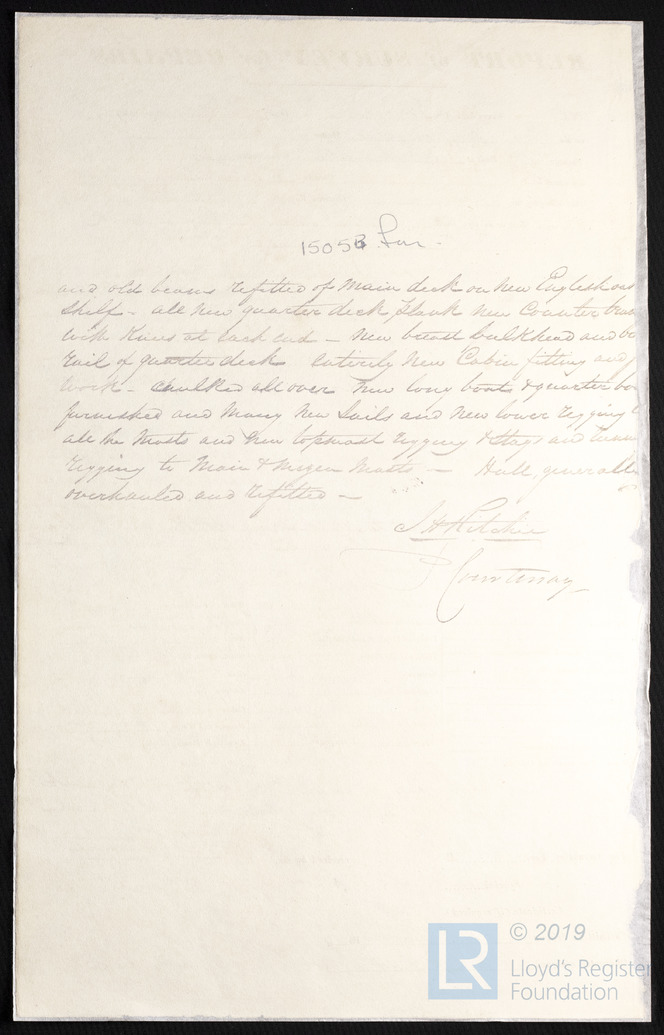 15056 Lon.
and old beams refitted of Main deck on New English oak
shelf - all new quarter deck plank New Counter
with Knees at each end - New breast bulkhead and
rail of quarter deck entirely New Cabin fitting and
work - Caulked all over New long boats & quarter
furnished and many New Sails and New lower rigging
all the Masts and New topmast rigging & Stays and
rigging to Main & Mizen Masts - Hull, generally
overhauled and refitted -
J H Ritchie
Courtenay
LR
© 2019
Lloyd's Register
Foundation